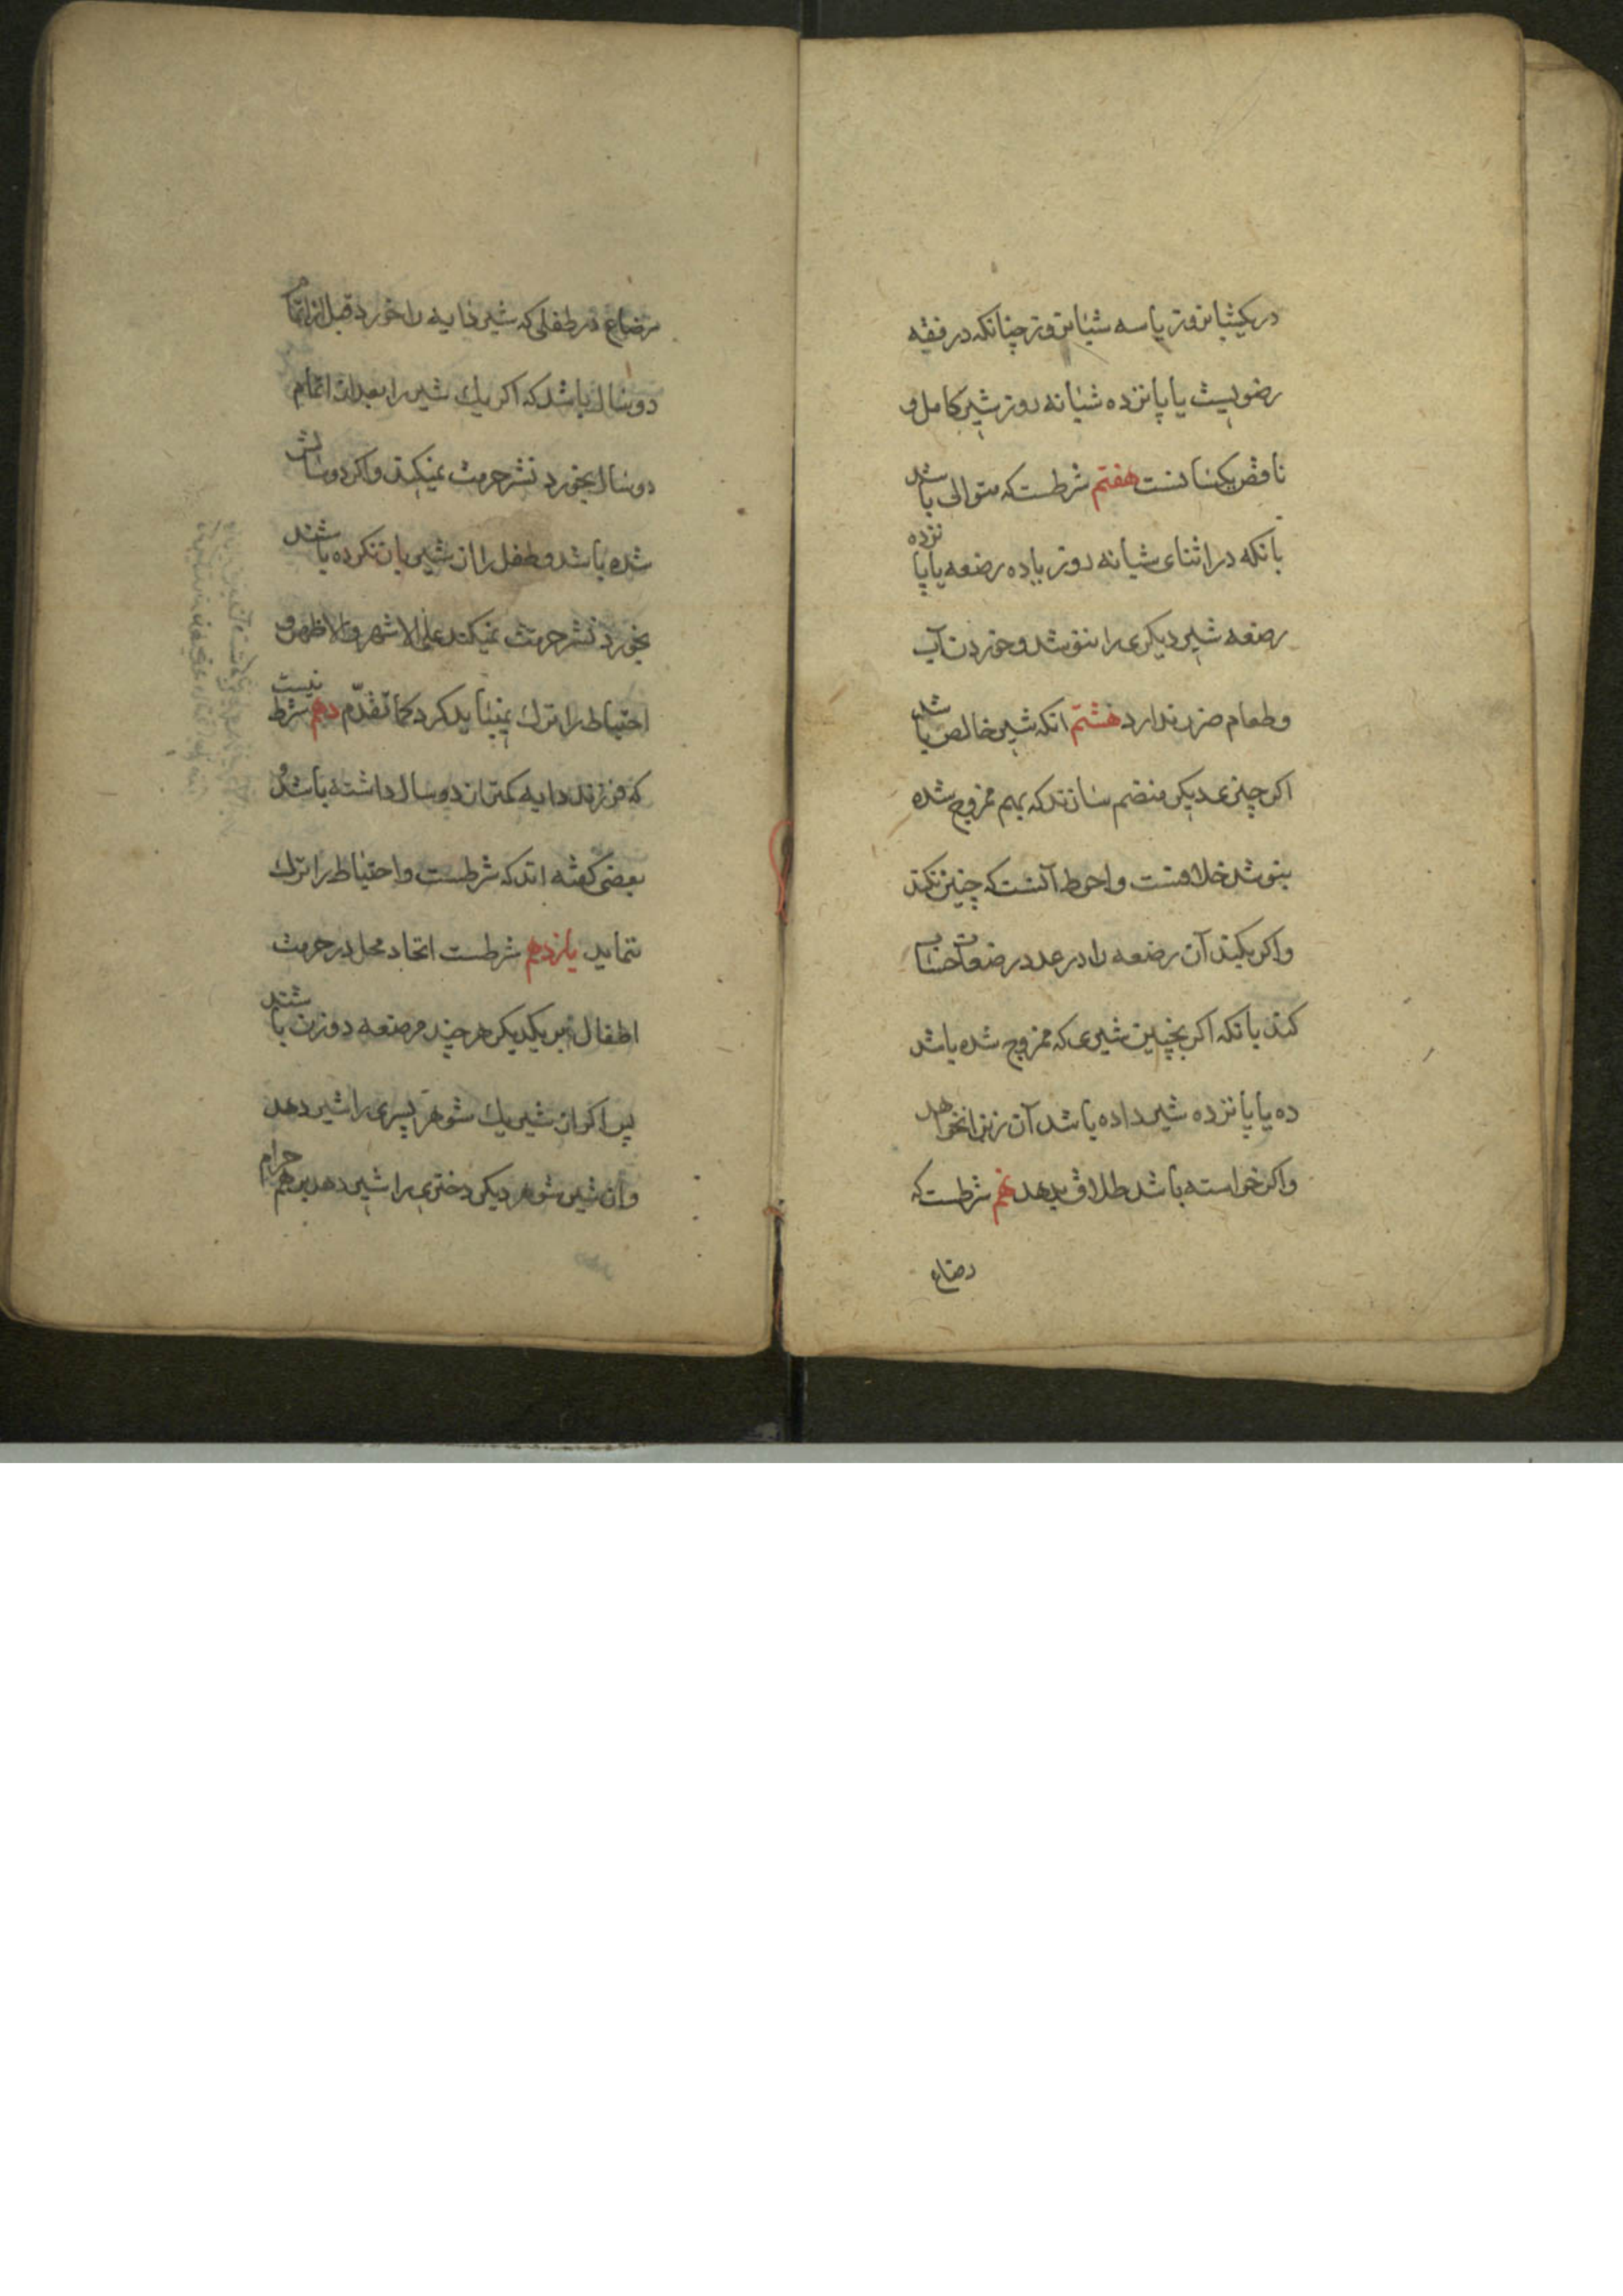 در یکشبانروز یا سه شبانروز چنانکه در فقه
رضویست یا پانزده شبانه روز شیر کامل و
ناقص یکسانست هفتم شرطست که متوالی باشد
بانکه در اثنای شبانه روز یا ده رضعه یا پانزده
رضعه شیر دیکری را ننوشد و خوردن آب
و طعام ضرر ندارد هشتم انکه شیر خالص باشد
اکر چیزی دیکر منضم سازند که بهم ممزوج شده
بنوشد خلافست و احوط آنست که چنین نکند
و اکر بکند آن رضعه را در عدد رضعات حساب
کند بانکه اکر بچنین شیری که ممزوج شده باشد
ده یا پانزده شیر داده باشد آن زنرا نخواهد
و اکر خواسته باشد طلاق بدهد نهم شرطست که
رضاع
رضاع در طفلی که شیر دایه را خورد قبل از اتمام
دو سال باشد که اکر یک شیر را بعد از اتمام
دو سال بخورد نشر حرمت نمیکند و اکر دو سالش
شده باشد و طفل را از شیر باز نکرده باشند
بخورد نشر حرمت نمیکند علی الاشهر والاظهر و
احتیاط را ترک نمیباید کرد کما تقدّم دهم شرط نیست
که فرزند دایه کمتر از دو سال داشته باشد و
بعضی کفته اند که شرطست و احتیاط را ترک
ننماید یازدهم شرطست اتحاد محل در حرمت
اطفال بر یکدیکر هر چند مرضعه دو زن باشند
پس اکر از شیر یک شوهر پسری را شیر دهد
و از شیر شوهر دیکر دختری را شیر دهد بر هم حرام